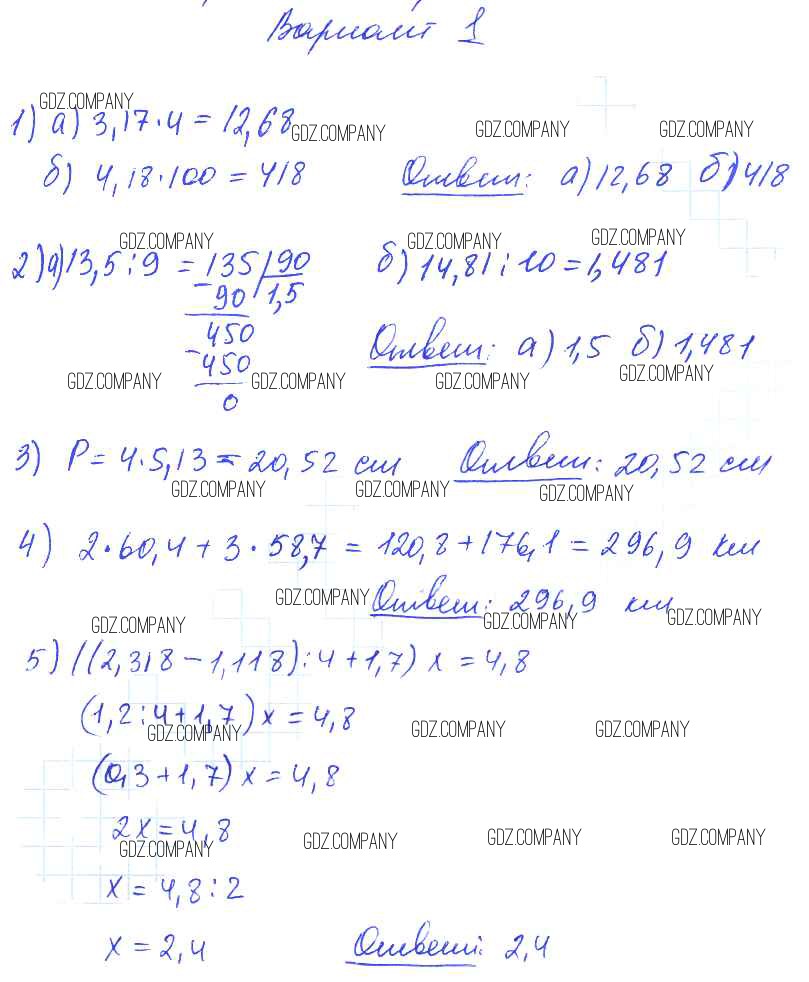 Вариант 1
GDZ.COMPANY
1) а) 3,17·4 = 12,68
GDZ.COMPANY GDZ.COMPANY GDZ.COMPANY
б) 4,18·100 = 418 Ответ: а) 12,68 б) 418
GDZ.COMPANY GDZ.COMPANY GDZ.COMPANY
2) а) 13,5 : 9 = 135 | 90 б) 14,81 : 10 = 1,481
- 90 | 1,5
450
- 450 Ответ: а) 1,5 б) 1,481
GDZ.COMPANY GDZ.COMPANY GDZ.COMPANY GDZ.COMPANY
0
3) P = 4·5,13 = 20,52 см Ответ: 20,52 см
GDZ.COMPANY GDZ.COMPANY GDZ.COMPANY
4) 2·60,4 + 3·58,7 = 120,8 + 176,1 = 296,9 км
GDZ.COMPANY Ответ: 296,9 км
GDZ.COMPANY GDZ.COMPANY GDZ.COMPANY
5) ((2,318 - 1,118) : 4 + 1,7) x = 4,8
(1,2 : 4 + 1,7) x = 4,8
GDZ.COMPANY GDZ.COMPANY GDZ.COMPANY
(0,3 + 1,7) x = 4,8
2x = 4,8
GDZ.COMPANY GDZ.COMPANY GDZ.COMPANY GDZ.COMPANY
x = 4,8 : 2
x = 2,4 Ответ: 2,4